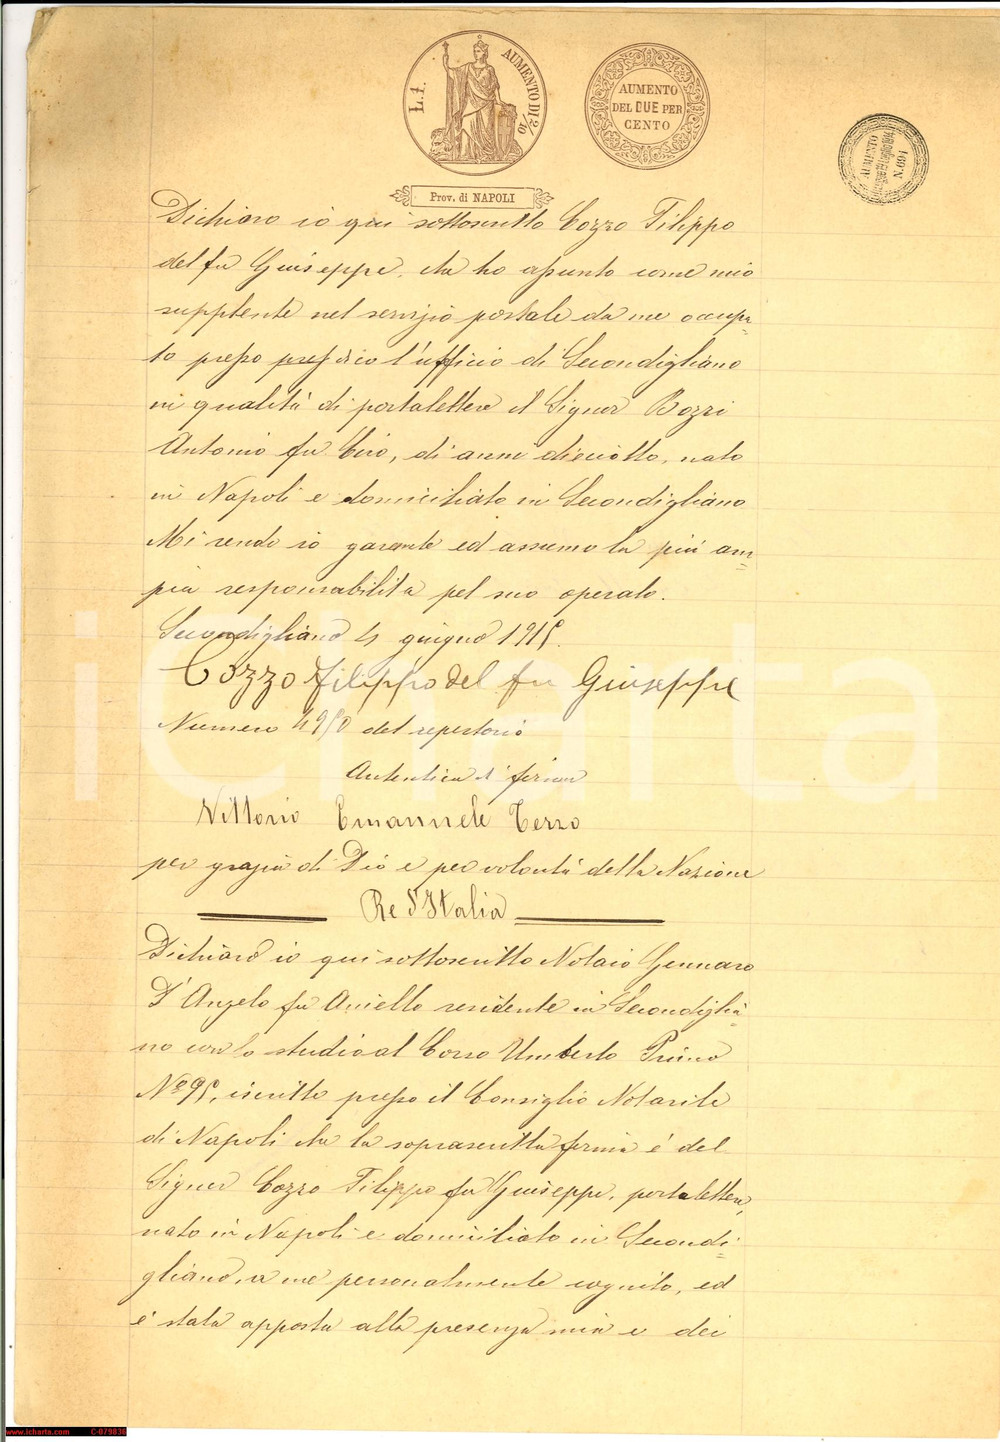 L. 1.
AUMENTO DI 2/10
AUMENTO
DEL DUE PER
CENTO
AUMENTO
N.091
Prov. di NAPOLI
Dichiaro io qui sottoscritto Cozzo Filippo
del fu Giuseppe, che ho assunto come mio
supplente nel servizio postale da me occupa=
to presso presso l'ufficio di Secondigliano
in qualità di portalettere il Signor Bozzi
Antonio fu Ciro, di anni dieciotto, nato
in Napoli e domiciliato in Secondigliano
Mi rendo io garante ed assumo la più am=
pia responsabilità pel suo operato.
Secondigliano 4 giugno 1915.
Cozzo Filippo del fu Giuseppe
Numero 4950 del repertorio
Autentica di firma
Vittorio Emanuele Terzo
per grazia di Dio e per volontà della Nazione
Re d'Italia
Dichiaro io qui sottoscritto Notaio Gennaro
D'Angelo fu Aniello residente in Secondiglia=
no con lo studio al Corso Umberto Primo
Nº 95, iscritto presso il Consiglio Notarile
di Napoli che la soprascritta firma è del
Signor Cozzo Filippo fu Giuseppe, portalettere,
nato in Napoli e domiciliato in Secondi=
gliano, a me personalmente cognito, ed
è stata apposta alla presenza mia e dei
iCharta
www.icharta.com C-079836